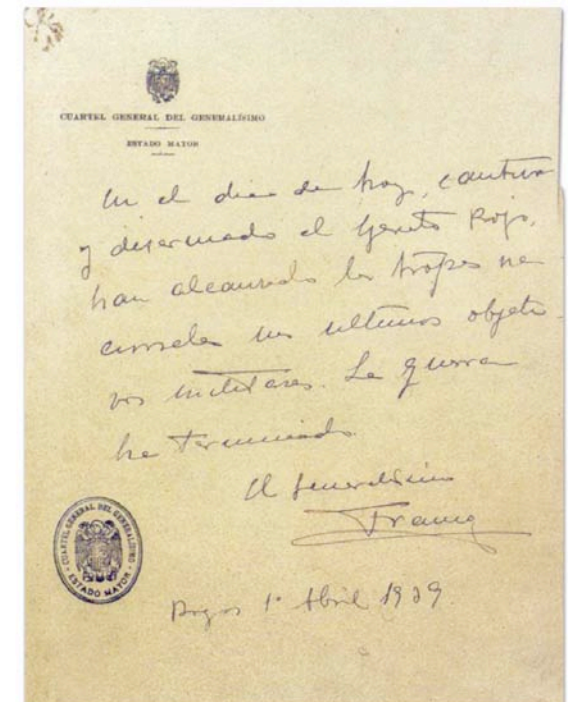 CUARTEL GENERAL DEL GENERALÍSIMO
ESTADO MAYOR
En el día de hoy, cautivo
y desarmado el Ejército Rojo,
han alcanzado las tropas na
cionales sus ultimos objeti-
vos militares. La guerra
ha terminado.
El Generalísimo
Franco
Burgos 1º Abril 1939.
CUARTEL GENERAL DEL GENERALÍSIMO
ESTADO MAYOR